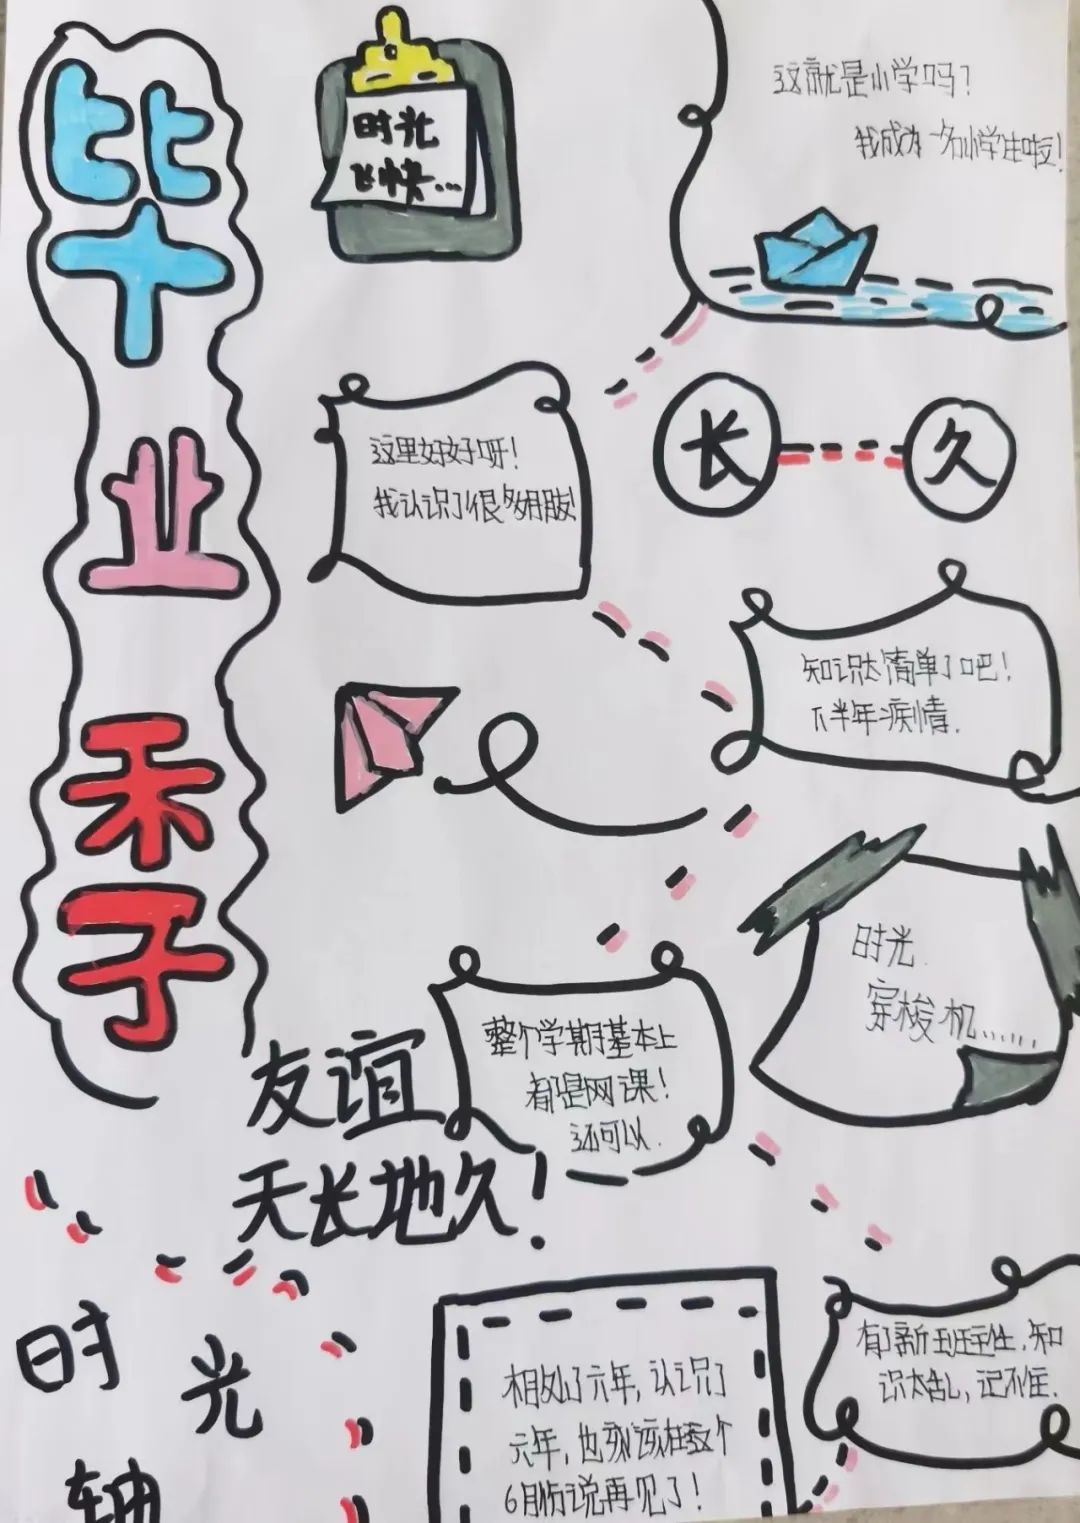 毕业季
时光
飞快...
这就是小学吗?
我成为一名小学生啦!
长久
这里好好呀!
我认识了很多朋友!
知识太简单了吧!
下半年疫情.
时光
穿梭机......
整个学期基本上
都是网课!
还可以.
友谊
天长地久!
有了新班主任,知
识太乱,记不住.
相处了六年,认识了
六年,也该在这个
6月份说再见了!
时光轴